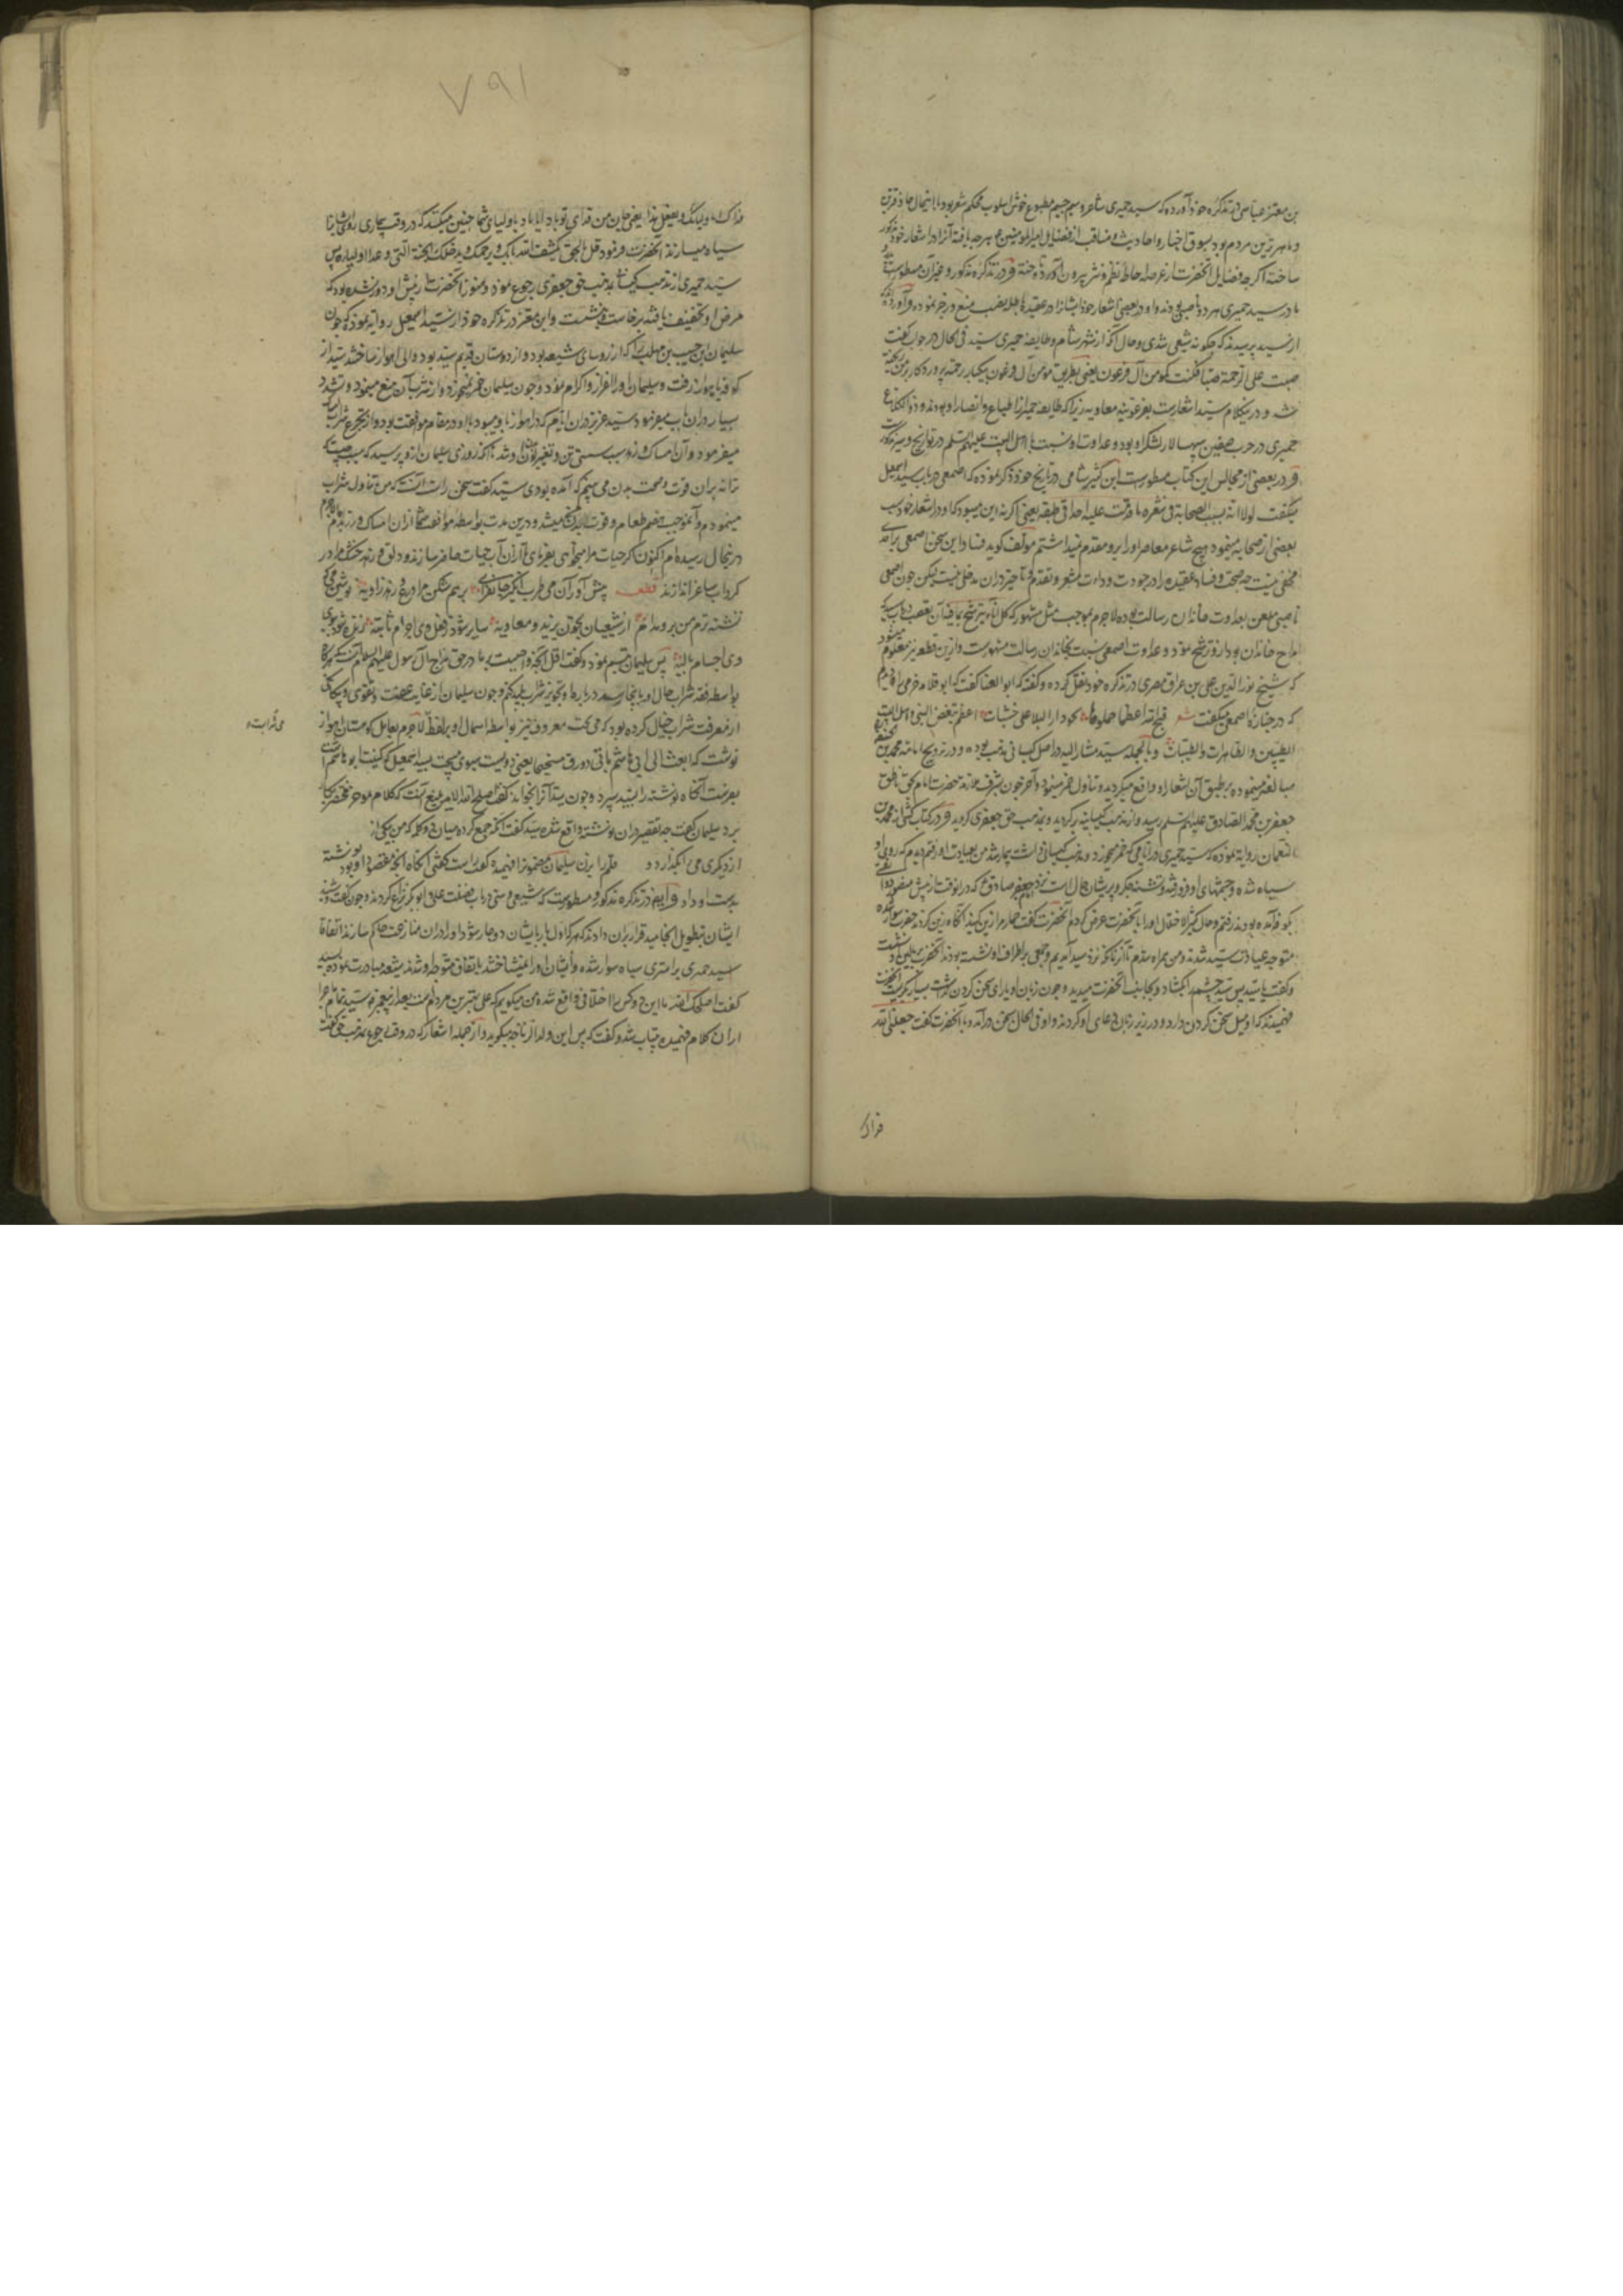 بن معتز عباسی در تذکره خود آورده که سید حمیری شاعر وسیم جسیم مطبوع خوش اسلوب محکم شعر بود با اینحال حاذقترین
و ماهرترین مردم بود بسوق اخبار و احادیث و مناقب از فضایل امیرالمومنین هرچه یافته آنرا در اشعار خود مذکور
ساخته اگرچه فضایل آنحضرت از عرصه احاطه نظم و نثر بیرون آورده و در تذکره مذکور و غیر آن مسطورست
مادر سید حمیری هر دو ناصبی بودند و او در بعضی اشعار خود ایشانرا در عقیده باطله نصب منع و زجر نموده و آورده اند
از سید پرسیدند که چگونه شیعی شدی و حال آنکه از شهر شام و طایفه حمیری سید فی الحال در جواب گفت
صبت علی الرحمة صبا فکنت کمومن آل فرعون یعنی بطریق مومن آل فرعون بیکبار رحمت پروردگار بر من ریخته
شد و درین کلام سید اشعاریست بفرعونیة معاویه زیرا که طایفه حمیر از اشیاع و انصار او بودند و ذوالکلاع
حمیری در حرب صفین سپهسالار لشکر او بود و عداوت او نسبت با اهل البیت علیهم السلم در تواریخ و سیر مذکورست
و در بعضی از مجالس این کتاب مسطورست ابن کثیر شامی در تاریخ خود ذکر نموده که اصمعی در باب سید اسمعیل
میگفت لولا انه یسب الصحابة فی شعره ما قدمت علیه احدا فی طبقته یعنی اگر نه این میبود که او در اشعار خود سب
بعضی از صحابه مینمود هیچ شاعر معاصر او را برو مقدم نمیداشتم مولف گوید فساد این سخن اصمعی بر احدی
مخفی نیست چه صحت و فساد عقیده را در جودت و رداءت شعر و تقدم و تاخیر در آن مدخلی نیست لیکن چون اصمعی
ناصبی ملعن بعداوت خاندان رسالت بوده لاجرم بموجب مثل مشهور که کل اناء یترشح بما فیه آن تعصب در باب سید که
مداح خاندان بود ازو ترشح نمود و عداوت اصمعی نسبت بخاندان رسالت مشهورست و ازین قطعه نیز معلوم میشود
که شیخ نورالدین علی بن عراق مصری در تذکره خود نقل کرده و گفته که ابوالعینا گفت که ابو قلابه جرمی را دیدم
که در جنازه اصمعی میگفت شعر قبح الله اعظما حملوها نحو دار البلا علی خشبات اعظم تبغض النبی و اهل البیت
الطیبین و الطاهرات و الطیبات و بالجمله سید مشارالیه در اصل کیسانی مذهب بوده و در ترویج امامت محمد بن حنفیه
مبالغه مینموده بر طبق آن اشعار او واقع میگردید و تناول خمر مینمود و آخر چون بشرف ملازمت حضرت امام بحق ناطق
جعفر بن محمد الصادق علیهم السلم رسید و از مذهب کیسانیه برگردید و بمذهب حق جعفری گروید و در کتاب کشی از محمد بن
نعمان روایت نموده که سید حمیری در ایامی که خمر میخورد و مذهب کیسانی داشت بیمار شد من بعیادت او رفتم دیدم که روی او
سیاه شده و چشمهای او فرو رفته و تشنه جگر و پریشان حال است نزد امام جعفر صادق ع که در انوقت از پیش منصور دوانقی
بکوفه آمده بودند رفتم و حال کثیر الاختلال او را بآنحضرت عرض کردم آنحضرت گفت حمار مرا زین کنید آنگاه زین کردند حضرت سوار شده
متوجه عیادت سید شدند و من همراه شدم تا آنکه نزد سید آمدیم و جمعی بر اطراف او نشسته بودند آنحضرت بر بالین او نشست
و گفت یا سید پس سید چشم را بگشاد و بجانب آنحضرت میدید و چون زبان او یارای سخن کردن نداشت بسیار بگریست آنحضرت
فهمیدند که او میل سخن کردن دارد و در زیر زبان دعای او کردند و او فی الحال بسخن درآمد و بآنحضرت گفت جعلنی الله
فداک
۷۹۱
فداک ا باولیائک یفعل هذا یعنی جان من فدای تو باد آیا باولیای شما چنین میکنند که در وقت بیماری روی ایشان را
سیاه میسازند آنحضرت فرمود قل بالحق یکشف الله ما بک و یرحمک و یدخلک الجنة التی وعد اولیاءه پس
سید حمیری از مذهب کیسانی بمذهب حق جعفری رجوع نمود و هنوز آنحضرت از پیش او دور نشده بود که
مرض او تخفیف یافته برخاست و بنشست و ابن معتز در تذکره خود از سید اسمعیل روایت نموده که چون
سلیمان بن حبیب بن مهلب را که از روسای شیعه بود و از دوستان قدیم سید بود والی اهواز ساختند سید از
کوفه باهواز رفت و سلیمان او را اعزاز و اکرام نمود و چون سلیمان خمر نمیخورد و از شرب آن منع مینمود و تشدد
بسیار در آن باب میفرمود سید عزیز در آن ایام که در اهواز با او میبود با او در مقام موافقت بود و از تجرع شراب امساک
میفرمود و آن امساک او را سبب سستی تن و تغیر لون او شد تا آنکه روزی سلیمان ازو پرسید که سبب چیست که
ترا نه بران قوت و صحت بدن می بینم که آمده بودی سید گفت سخن راست آنست که من تناول شراب
مینمودم و آن موجب هضم طعام و قوت بدن من میشد و درین مدت بواسطه موافقت شما از ان امساک ورزیدم لاجرم
درینحال رسیده ام اکنون اگر حیات مرا میخواهی بفرمای تا از آن آب حیات حاضر سازند و دلق زهد خشک مرا در
گرداب ساغر اندازند قطعه پیش آور آن می طرب انگیز جانفزای برهم شکن مراوغ و زهد زاویه نوشی می
نشسته بزم من بروید از شیعیان بخون یزید و معاویه سایر شود ز فعل وی اجرام ثابته زنده شود ببوی
وی اجسام بالیه پس سلیمان تبسم نمود و گفت اقل آنچه واجبست بر ما در حق مداح آل رسول علیهم السلام آنست که هرگاه
او از معرفت شراب خیال کرده بود که می پخت معروف نیز بواسطه اسمال او بر لفظ لاجرم بعامل کوهستان اهواز
می شرابست
نوشت که ابعث الی ابی هاشم مأتی دورق میبختجا یعنی دویست سبوی میپخت بسید اسمعیل که کنیت ابو هاشم است
بفرست آنگاه نوشته را بسید سپرد و چون سید آنرا بخواند گفت اصلح الله الامیر بلیغ آنست که کلام موجز مختصر بکار
برد سلیمان گفت چه تقصیر در ان نوشته واقع شده سید گفت آنکه جمع کرده میان دو کلمه که من بیکی از
از دیگری می بگذار دو قلم را بزن سلیمان مضمون را فهمیده گفت راست گفتی آنگاه آنچه مقصود او بود نوشته
بدست او داد و ایضا در تذکره مذکور مسطورست که شیعی و سنی در باب افضلیت علی و ابوبکر نزاع کردند و چون گفت و شنید
ایشان بتطویل انجامید قرار بران دادند که هر که اول بار بایشان دوچار شود او را در ان منازعت حاکم سازند اتفاقا
سید حمیری بر استری سیاه سوار شده و ایشان او را نمیشناختند باتفاق متوجه او شدند شیعه مبادرت نموده بسید
گفت اصلحک الله ما را این دو کس را اختلافی واقع شده من میگویم که علی بهترین مردم است بعد از پیغمبر
از ان کلام فهمیده بیتاب شد و گفت که پس این ولد الزنا چه میگوید و از جمله اشعار که در وقت رجوع بمذهب حق گفته